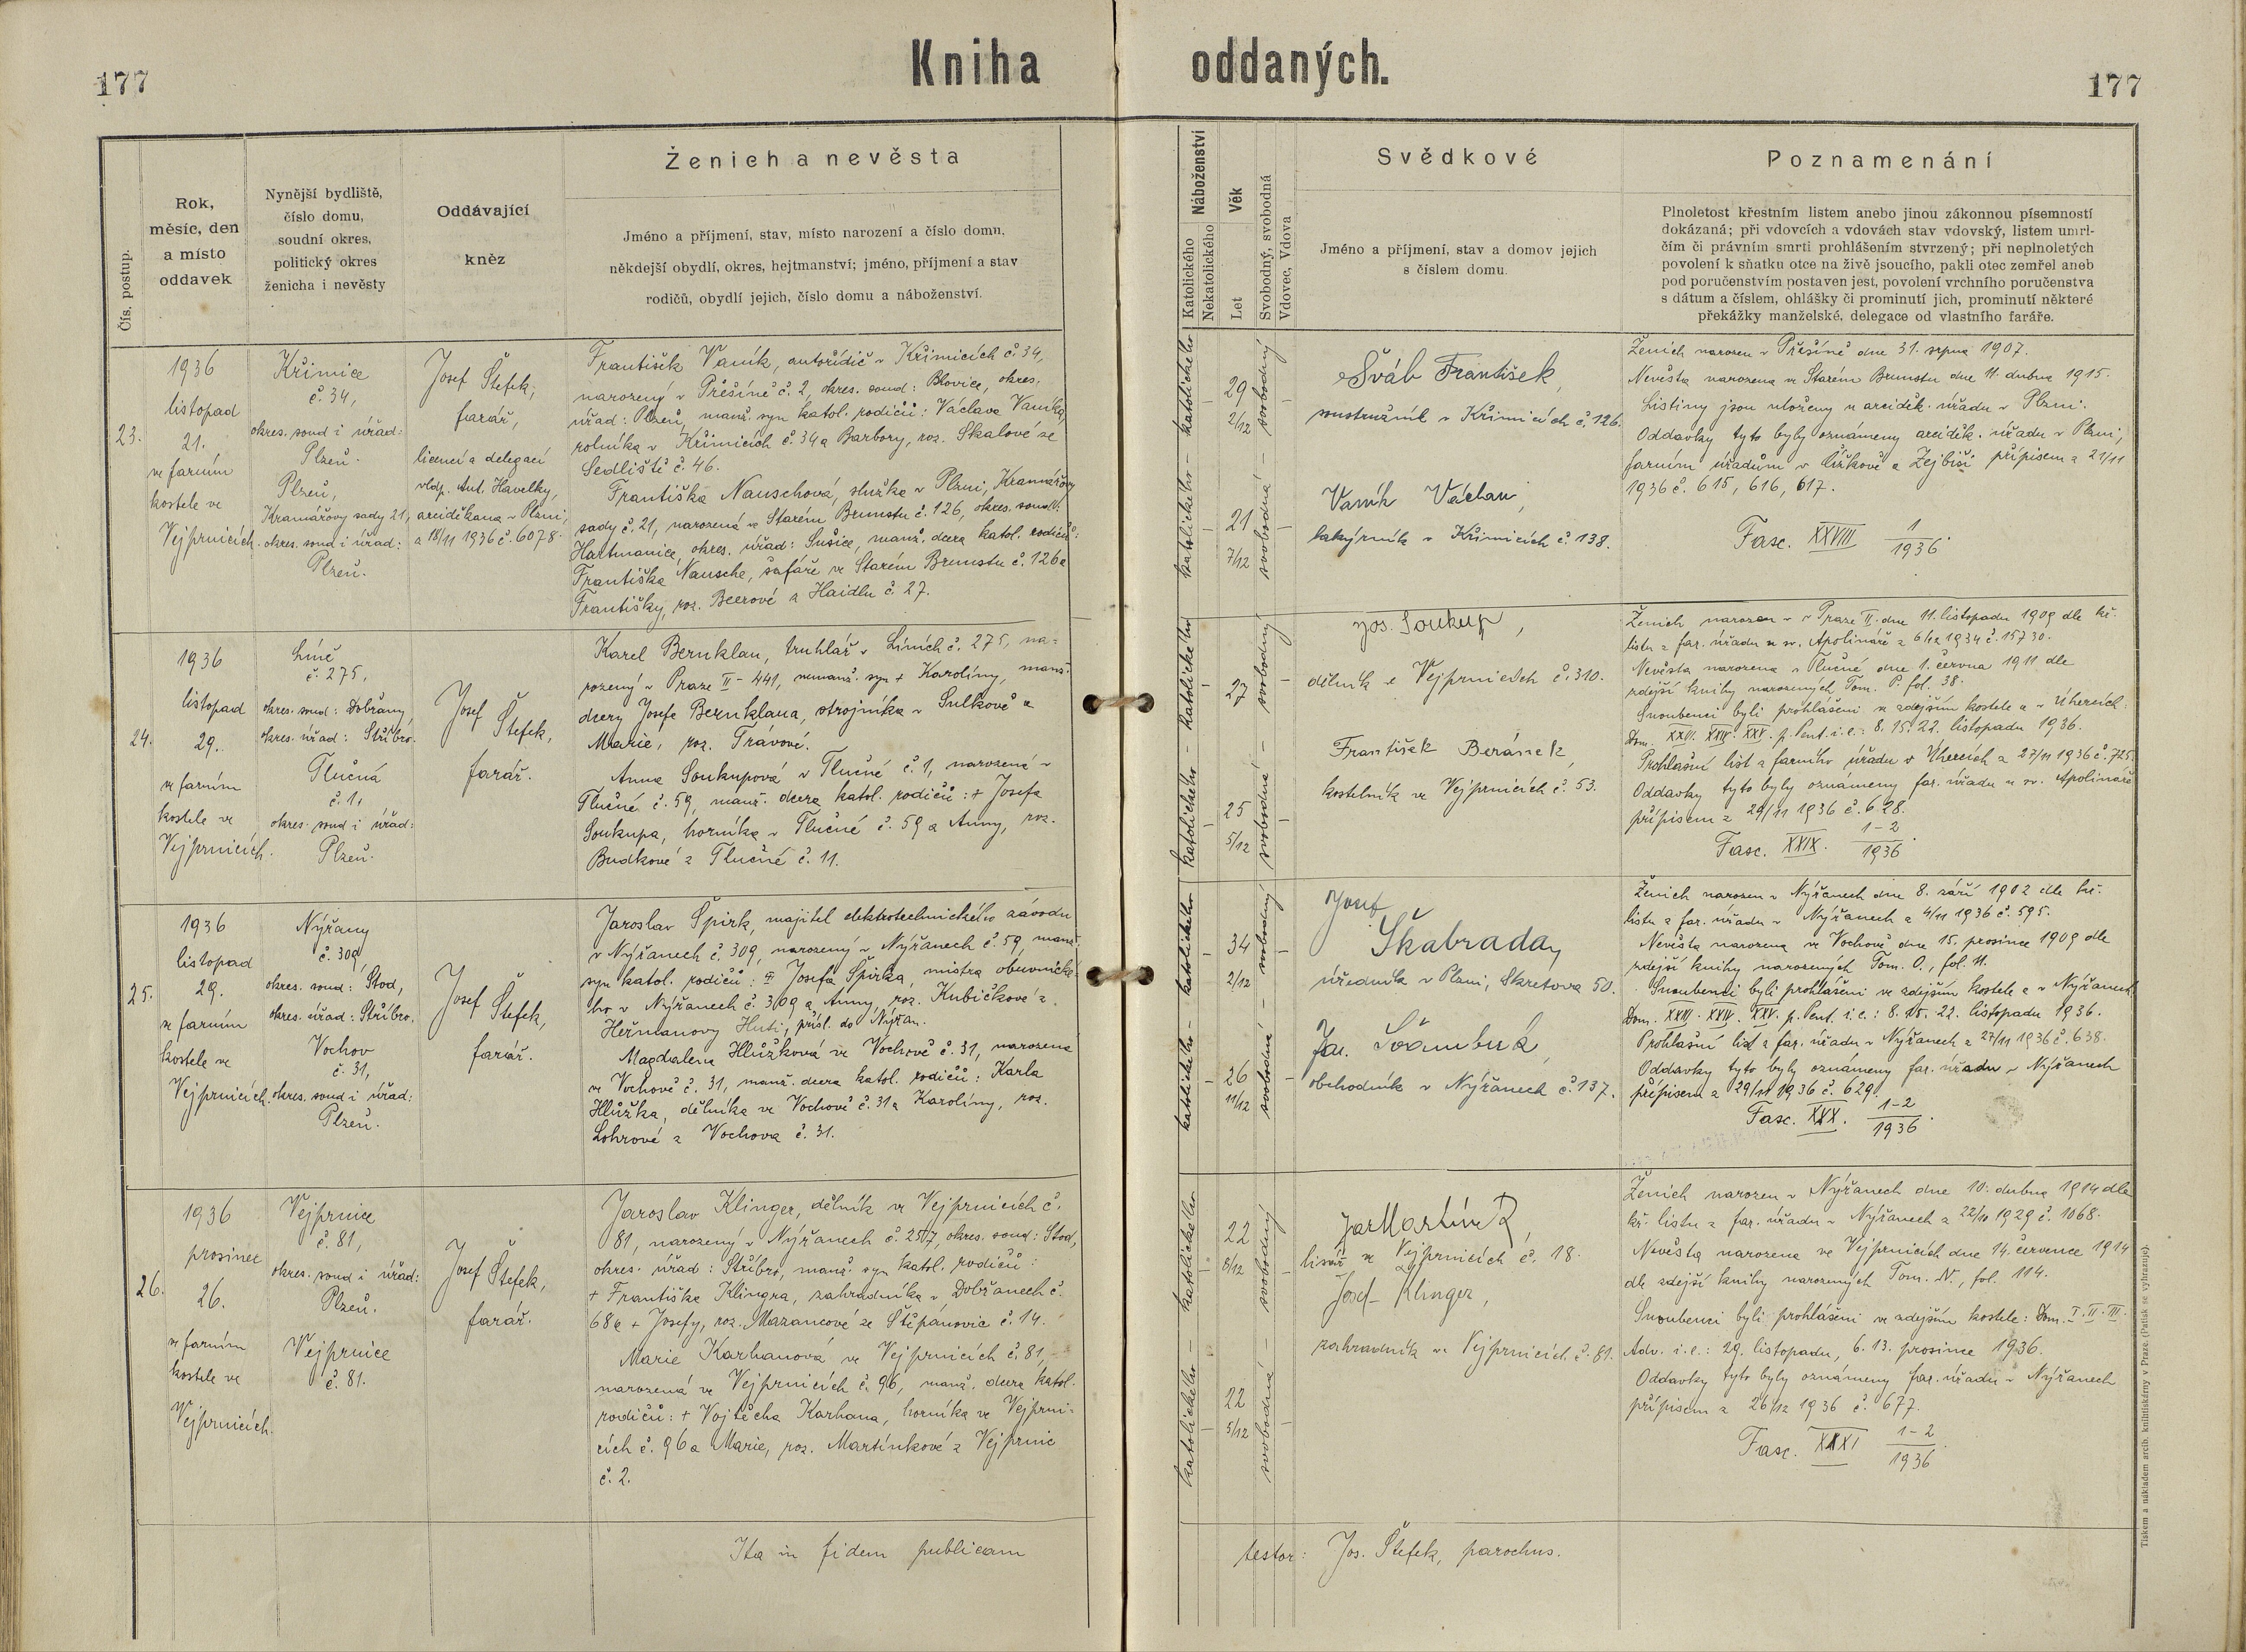 177
Kniha oddaných.
177
Čís. postup.
Rok,
měsíc, den
a místo
oddavek
Nynější bydliště,
číslo domu,
soudní okres,
politický okres
ženicha i nevěsty
Oddávající
kněz
Ženich a nevěsta
Jméno a příjmení, stav, místo narození a číslo domu,
někdejší obydlí, okres, hejtmanství; jméno, příjmení a stav
rodičů, obydlí jejich, číslo domu a náboženství.
Náboženství
Katolického
Nekatolického
Věk
Let
Svobodný, svobodná
Vdovec, Vdova
Svědkové
Jméno a příjmení, stav a domov jejich
s číslem domu.
Poznamenání
Plnoletost křestním listem anebo jinou zákonnou písemností
dokázaná; při vdovcích a vdovách stav vdovský, listem umrl-
čím či právním smrti prohlášením stvrzený; při neplnoletých
povolení k sňatku otce na živě jsoucího, pakli otec zemřel aneb
pod poručenstvím postaven jest, povolení vrchního poručenstva
s dátum a číslem, ohlášky či prominutí jich, prominutí některé
překážky manželské, delegace od vlastního faráře.
23.
1936
listopad
21.
ve farním
kostele ve
Vejprnicích.
Křimice
č. 34,
okres. soud i úřad:
Plzeň.
Plzeň,
Kramářovy sady 21,
okres. soud i úřad:
Plzeň.
Josef Štefek,
farář,
licencí a delegací
vldp. Ant. Havelky,
arciděkana v Plzni,
z 18/11 1936 č. 6078.
František Vaník, autořidič v Křimicích č. 34,
narozený v Přešíně č. 2, okres. soud: Blovice, okres.
úřad: Plzeň, manž. syn katol. rodičů: Václava Vaníka,
rolníka v Křimicích č. 34 a Barbory, roz. Skalové ze
Sedliště č. 46.
Františka Nauschová, služka v Plzni, Kramářovy
sady č. 21, narozená ve Starém Brunstu č. 126, okres. soud:
Hartmanice, okres. úřad: Sušice, manž. dcera katol. rodičů:
Františka Nausche, šafáře ve Starém Brunstu č. 126 a
Františky, roz. Beerové z Haidlu č. 27.
katolického – katolického
29
2/12
21
7/12
svobodný
svobodná
Šváb František,
soustružník v Křimicích č. 126.
Vaník Václav,
lakýrník v Křimicích č. 138.
Ženich narozen v Přešíně dne 31. srpna 1907.
Nevěsta narozena ve Starém Brunstu dne 11. dubna 1915.
Listiny jsou uloženy u arciděk. úřadu v Plzni.
Oddavky tyto byly oznámeny arciděk. úřadu v Plzni,
farním úřadům v Čížkově a Zejbiši přípisem z 21/11
1936 č. 615, 616, 617.
Fasc. XXVIII 1/1936.
24.
1936
listopad
29.
ve farním
kostele ve
Vejprnicích.
Líně
č. 275,
okres. soud: Dobřany
okres. úřad: Stříbro.
Tlučná
č. 1,
okres. soud i úřad:
Plzeň.
Josef
Štefek,
farář.
Karel Bernklau, truhlář v Líních č. 275, na-
rozený v Praze II - 441, nemanž. syn + Karolíny, manž.
dcery Josefa Bernklaua, strojníka v Sulkově a
Marie, roz. Trávové.
Anna Soukupová v Tlučné č. 1, narozená v
Tlučné č. 59, manž. dcera katol. rodičů: + Josefa
Soukupa, horníka v Tlučné č. 59 a Anny, roz.
Budkové z Tlučné č. 11.
katolického – katolického
27
25
5/12
svobodný
svobodná
Jos. Soukup,
dělník v Vejprnicích č. 310.
František Beránek,
kostelník ve Vejprnicích č. 53.
Ženich narozen v Praze II. dne 11. listopadu 1909 dle kř.
listu z far. úřadu u sv. Apolináře z 6/12 1934 č. 15730.
Nevěsta narozena v Tlučné dne 1. června 1911 dle
zdejší knihy narozených Tom. P. fol. 38.
Snoubenci byli prohlášeni ve zdejším kostele a v Úhercích:
Dom. XXIII. XXIV. XXV. p. Pent. i. e.: 8. 15. 22. listopadu 1936.
Prohlašní list z farního úřadu v Úhercích z 27/11 1936 č. 725.
Oddavky tyto byly oznámeny far. úřadu u sv. Apolináře
přípisem z 29/11 1936 č. 628.
Fasc. XXIX. 1-2/1936.
25.
1936
listopad
29.
ve farním
kostele ve
Vejprnicích.
Nýřany
č. 309,
okres. soud: Stod,
okres. úřad: Stříbro.
Vochov
č. 31,
okres. soud i úřad:
Plzeň.
Josef
Štefek,
farář.
Jaroslav Špirk, majitel elektrotechnického závodu
v Nýřanech č. 309, narozený v Nýřanech č. 59, manž.
syn katol. rodičů: Josefa Špirka, mistra obuvnické-
ho v Nýřanech č. 309 a Anny, roz. Kubičkové z
Heřmanovy Huti, přísl. do Nýřan.
Magdalena Hlůžková ve Vochově č. 31, narozena
ve Vochově č. 31, manž. dcera katol. rodičů: Karla
Hlůžka, dělníka ve Vochově č. 31 a Karolíny, roz.
Lohrové z Vochova č. 31.
katolického – katolického
34
2/12
26
11/12
svobodný
svobodná
Josef
Škabraday
úředník v Plzni, Skretova 50.
Jar.
obchodník v Nýřanech č. 137.
Ženich narozen v Nýřanech dne 8. září 1902 dle kř.
listu z far. úřadu v Nýřanech z 4/11 1936 č. 595.
Nevěsta narozena ve Vochově dne 15. prosince 1909 dle
zdejší knihy narozených Tom. O., fol. 11.
Snoubenci byli prohlášeni ve zdejším kostele a v Nýřanech:
Dom. XXIII. XXIV. XXV. p. Pent. i. e.: 8. 15. 22. listopadu 1936.
Prohlašní list z far. úřadu v Nýřanech z 27/11 1936 č. 638.
Oddavky tyto byly oznámeny far. úřadu v Nýřanech
přípisem z 29/11 1936 č. 629.
Fasc. XXX. 1-2/1936.
26.
1936
prosinec
26.
ve farním
kostele ve
Vejprnicích.
Vejprnice
č. 81,
okres. soud i úřad:
Plzeň.
Vejprnice
č. 81.
Josef Štefek,
farář.
Jaroslav Klinger, dělník ve Vejprnicích č.
81, narozený v Nýřanech č. 257, okres. soud: Stod,
okres. úřad: Stříbro, manž. syn katol. rodičů:
+ Františka Klingra, zahradníka v Dobřanech č.
68 a + Josefy, roz. Mazancové ze Štěpánovic č. 14.
Marie Karhanová ve Vejprnicích č. 81,
narozená ve Vejprnicích č. 96, manž. dcera katol.
rodičů: + Vojtěcha Karhana, horníka ve Vejprni-
cích č. 96 a Marie, roz. Martínkové z Vejprnic
č. 2.
katolického – katolického
22
8/12
22
5/12
svobodný
svobodná
Jar Martínek
lisař ve Vejprnicích č. 18.
Josef Klinger,
zahradník ve Vejprnicích č. 81.
Ženich narozen v Nýřanech dne 10. dubna 1914 dle
kř. listu z far. úřadu v Nýřanech z 22/10 1929 č. 1068.
Nevěsta narozena ve Vejprnicích dne 14. července 1914
dle zdejší knihy narozených Tom. N., fol. 114.
Snoubenci byli prohlášeni ve zdejším kostele: Dom. I. II. III.
Adv. i. e.: 29. listopadu, 6. 13. prosince 1936.
Oddavky tyto byly oznámeny far. úřadu v Nýřanech
přípisem z 26/12 1936 č. 677.
Fasc. XXXI 1-2/1936.
Ita in fidem publicam testor: Jos. Štefek, parochus.
Tiskem a nákladem arcib. knihtiskárny v Praze. (Patisk se vyhrazuje).